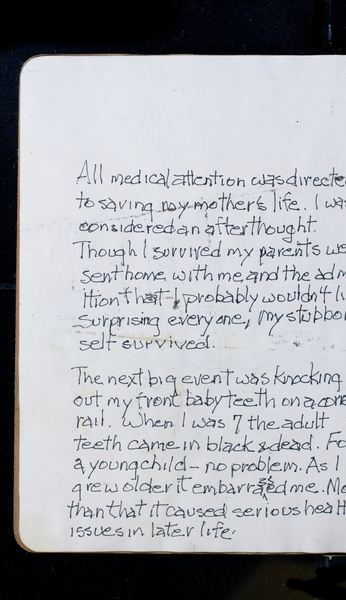 All medical attention was directe
to saving my mother's life. I was
considered an afterthought.
Though I survived my parents we
sent home with me, and the adm
ition that I probably wouldn't li
surprising everyone, my stubbo
self survived.
The next big event was knocking
out my front baby teeth on a
rail. When I was 7 the adult
teeth came in black & dead. Fo
a young child - no problem. As I
grew older it embarrassed me. Mo
than that it caused serious healt
issues in later life.